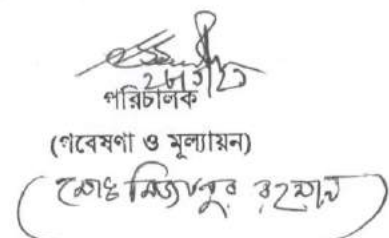 পরিচালক
(গবেষণা ও মূল্যায়ন)
মোঃ মিজানুর রহমান